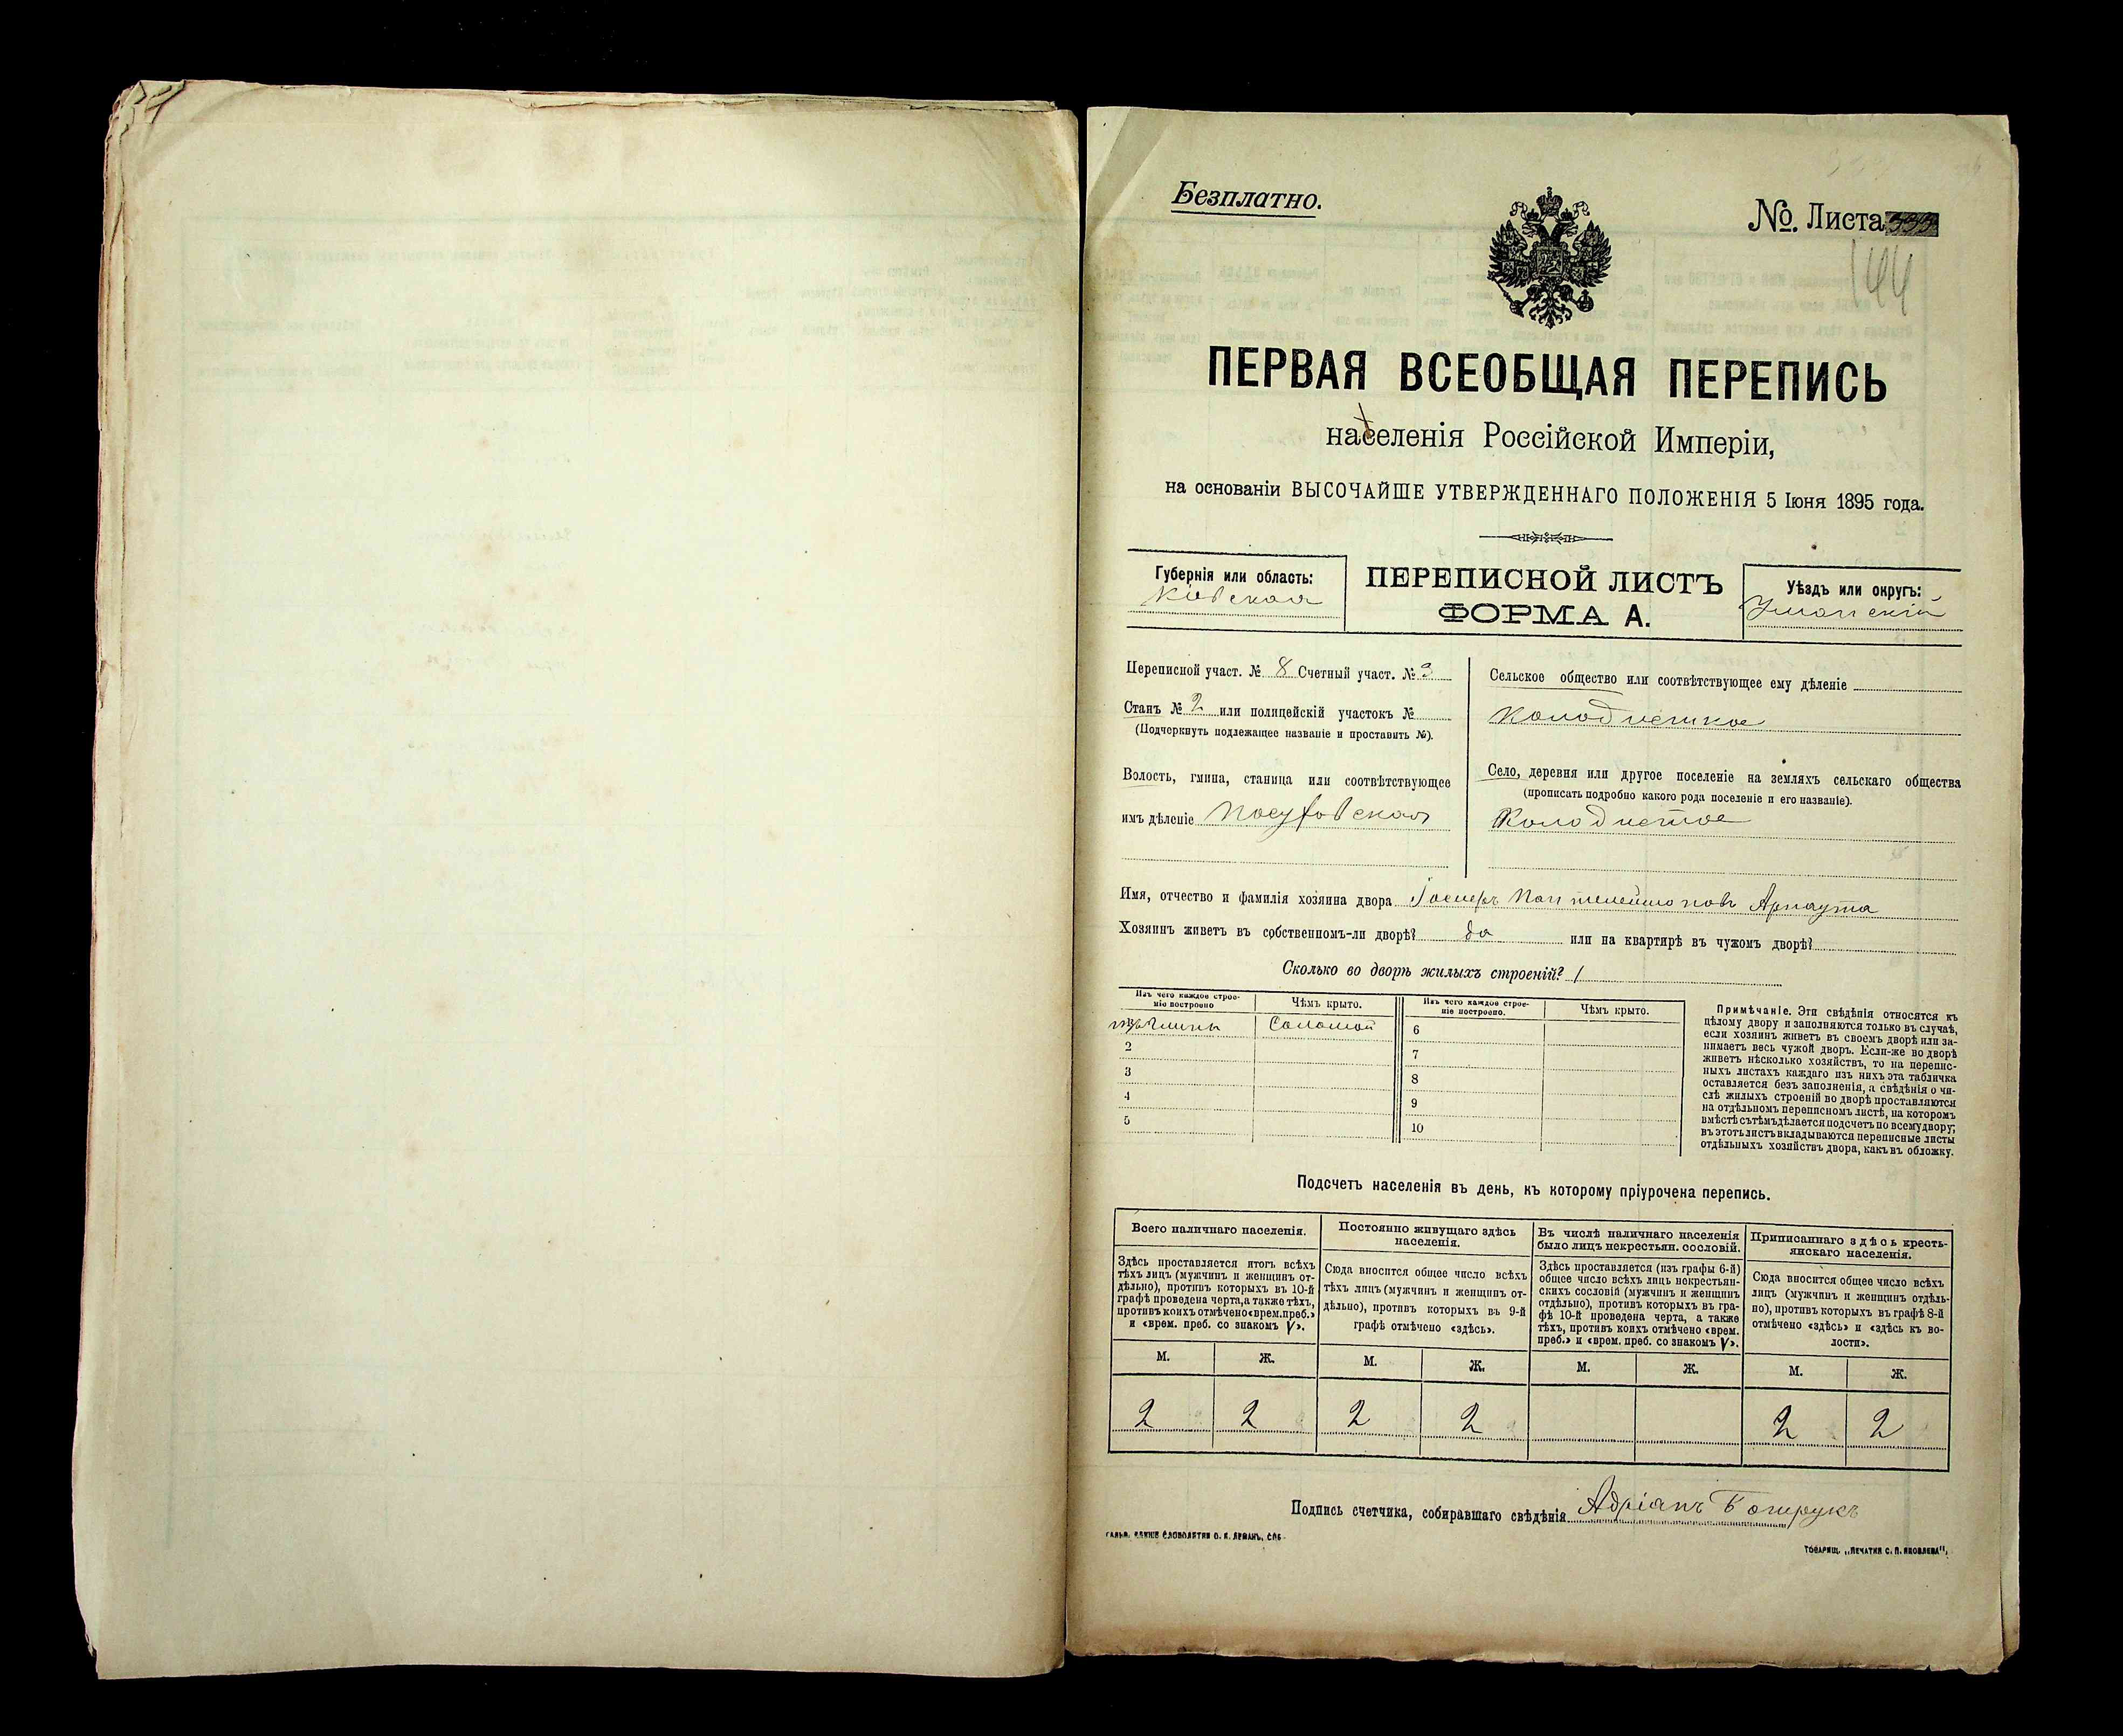 Безплатно.
№. Листа
144
ПЕРВАЯ ВСЕОБЩАЯ ПЕРЕПИСЬ
населенія Россійской Имперіи,
на основаніи ВЫСОЧАЙШЕ УТВЕРЖДЕННАГО ПОЛОЖЕНІЯ 5 Іюня 1895 года.
Губернія или область:
Кіевская
ПЕРЕПИСНОЙ ЛИСТЪ
ФОРМА А.
Уѣздъ или округъ:
Уманскій
Переписной участ. № 8 Счетный участ. № 3
Станъ № 2 или полицейскій участокъ №
(Подчеркнуть подлежащее названіе и проставить №).
Волость, гмина, станица или соотвѣтствующее
имъ дѣленіе
Сельское общество или соотвѣтствующее ему дѣленіе
Колодистское
Село, деревня или другое поселеніе на земляхъ сельскаго общества
(прописать подробно какого рода поселеніе и его названіе).
Колодистое
Имя, отчество и фамилія хозяина двора Пантелеймоновъ Арнаута
Хозяинъ живетъ въ собственномъ-ли дворѣ? да или на квартирѣ въ чужомъ дворѣ?
Сколько во дворѣ жилыхъ строеній? 1
Изъ чего каждое строе-
ніе построено
Чѣмъ крыто.
Изъ чего каждое строе-
ніе построено.
Чѣмъ крыто.
глины Соломой 6
2 7
3 8
4 9
5 10
Примѣчаніе. Эти свѣдѣнія относятся къ
цѣлому двору и заполняются только въ случаѣ,
если хозяинъ живетъ въ своемъ дворѣ или за-
нимаетъ весь чужой дворъ. Если-же во дворѣ
живетъ нѣсколько хозяйствъ, то на перепис-
ныхъ листахъ каждаго изъ нихъ эта табличка
оставляется безъ заполненія, а свѣдѣнія о чи-
слѣ жилыхъ строеній во дворѣ проставляются
на отдѣльномъ переписномъ листѣ, на которомъ
вмѣстѣ съ тѣмъ дѣлается подсчетъ по всему двору;
въ этотъ листъ вкладываются переписные листы
отдѣльныхъ хозяйствъ двора, какъ въ обложку.
Подсчетъ населенія въ день, къ которому пріурочена перепись.
Всего наличнаго населенія.
Здѣсь проставляется итогъ всѣхъ
тѣхъ лицъ (мужчинъ и женщинъ от-
дѣльно), противъ которыхъ въ 10-й
графѣ проведена черта, а также тѣхъ,
противъ коихъ отмѣчено «врем. преб.»
и «врем. преб. со знакомъ V».
Постоянно живущаго здѣсь
населенія.
Сюда вносится общее число всѣхъ
тѣхъ лицъ (мужчинъ и женщинъ от-
дѣльно), противъ которыхъ въ 9-й
графѣ отмѣчено «здѣсь».
Въ числѣ наличнаго населенія
было лицъ некрестьян. сословій.
Здѣсь проставляется (изъ графы 6-й)
общее число всѣхъ лицъ некрестьян-
скихъ сословій (мужчинъ и женщинъ
отдѣльно), противъ которыхъ въ гра-
фѣ 10-й проведена черта, а также
тѣхъ, противъ коихъ отмѣчено «врем.
преб.» и «врем. преб. со знакомъ V».
Приписаннаго здѣсь кресть-
янскаго населенія.
Сюда вносится общее число всѣхъ
лицъ (мужчинъ и женщинъ отдѣль-
но), противъ которыхъ въ графѣ 8-й
отмѣчено «здѣсь» и «здѣсь къ во-
лости».
М. Ж. М. Ж. М. Ж. М. Ж.
2 2 2 2 2 2
Подпись счетчика, собиравшаго свѣдѣнія Адріанъ
ТОВАРИЩ. „ПЕЧАТНЯ С. П. ЯКОВЛЕВА".